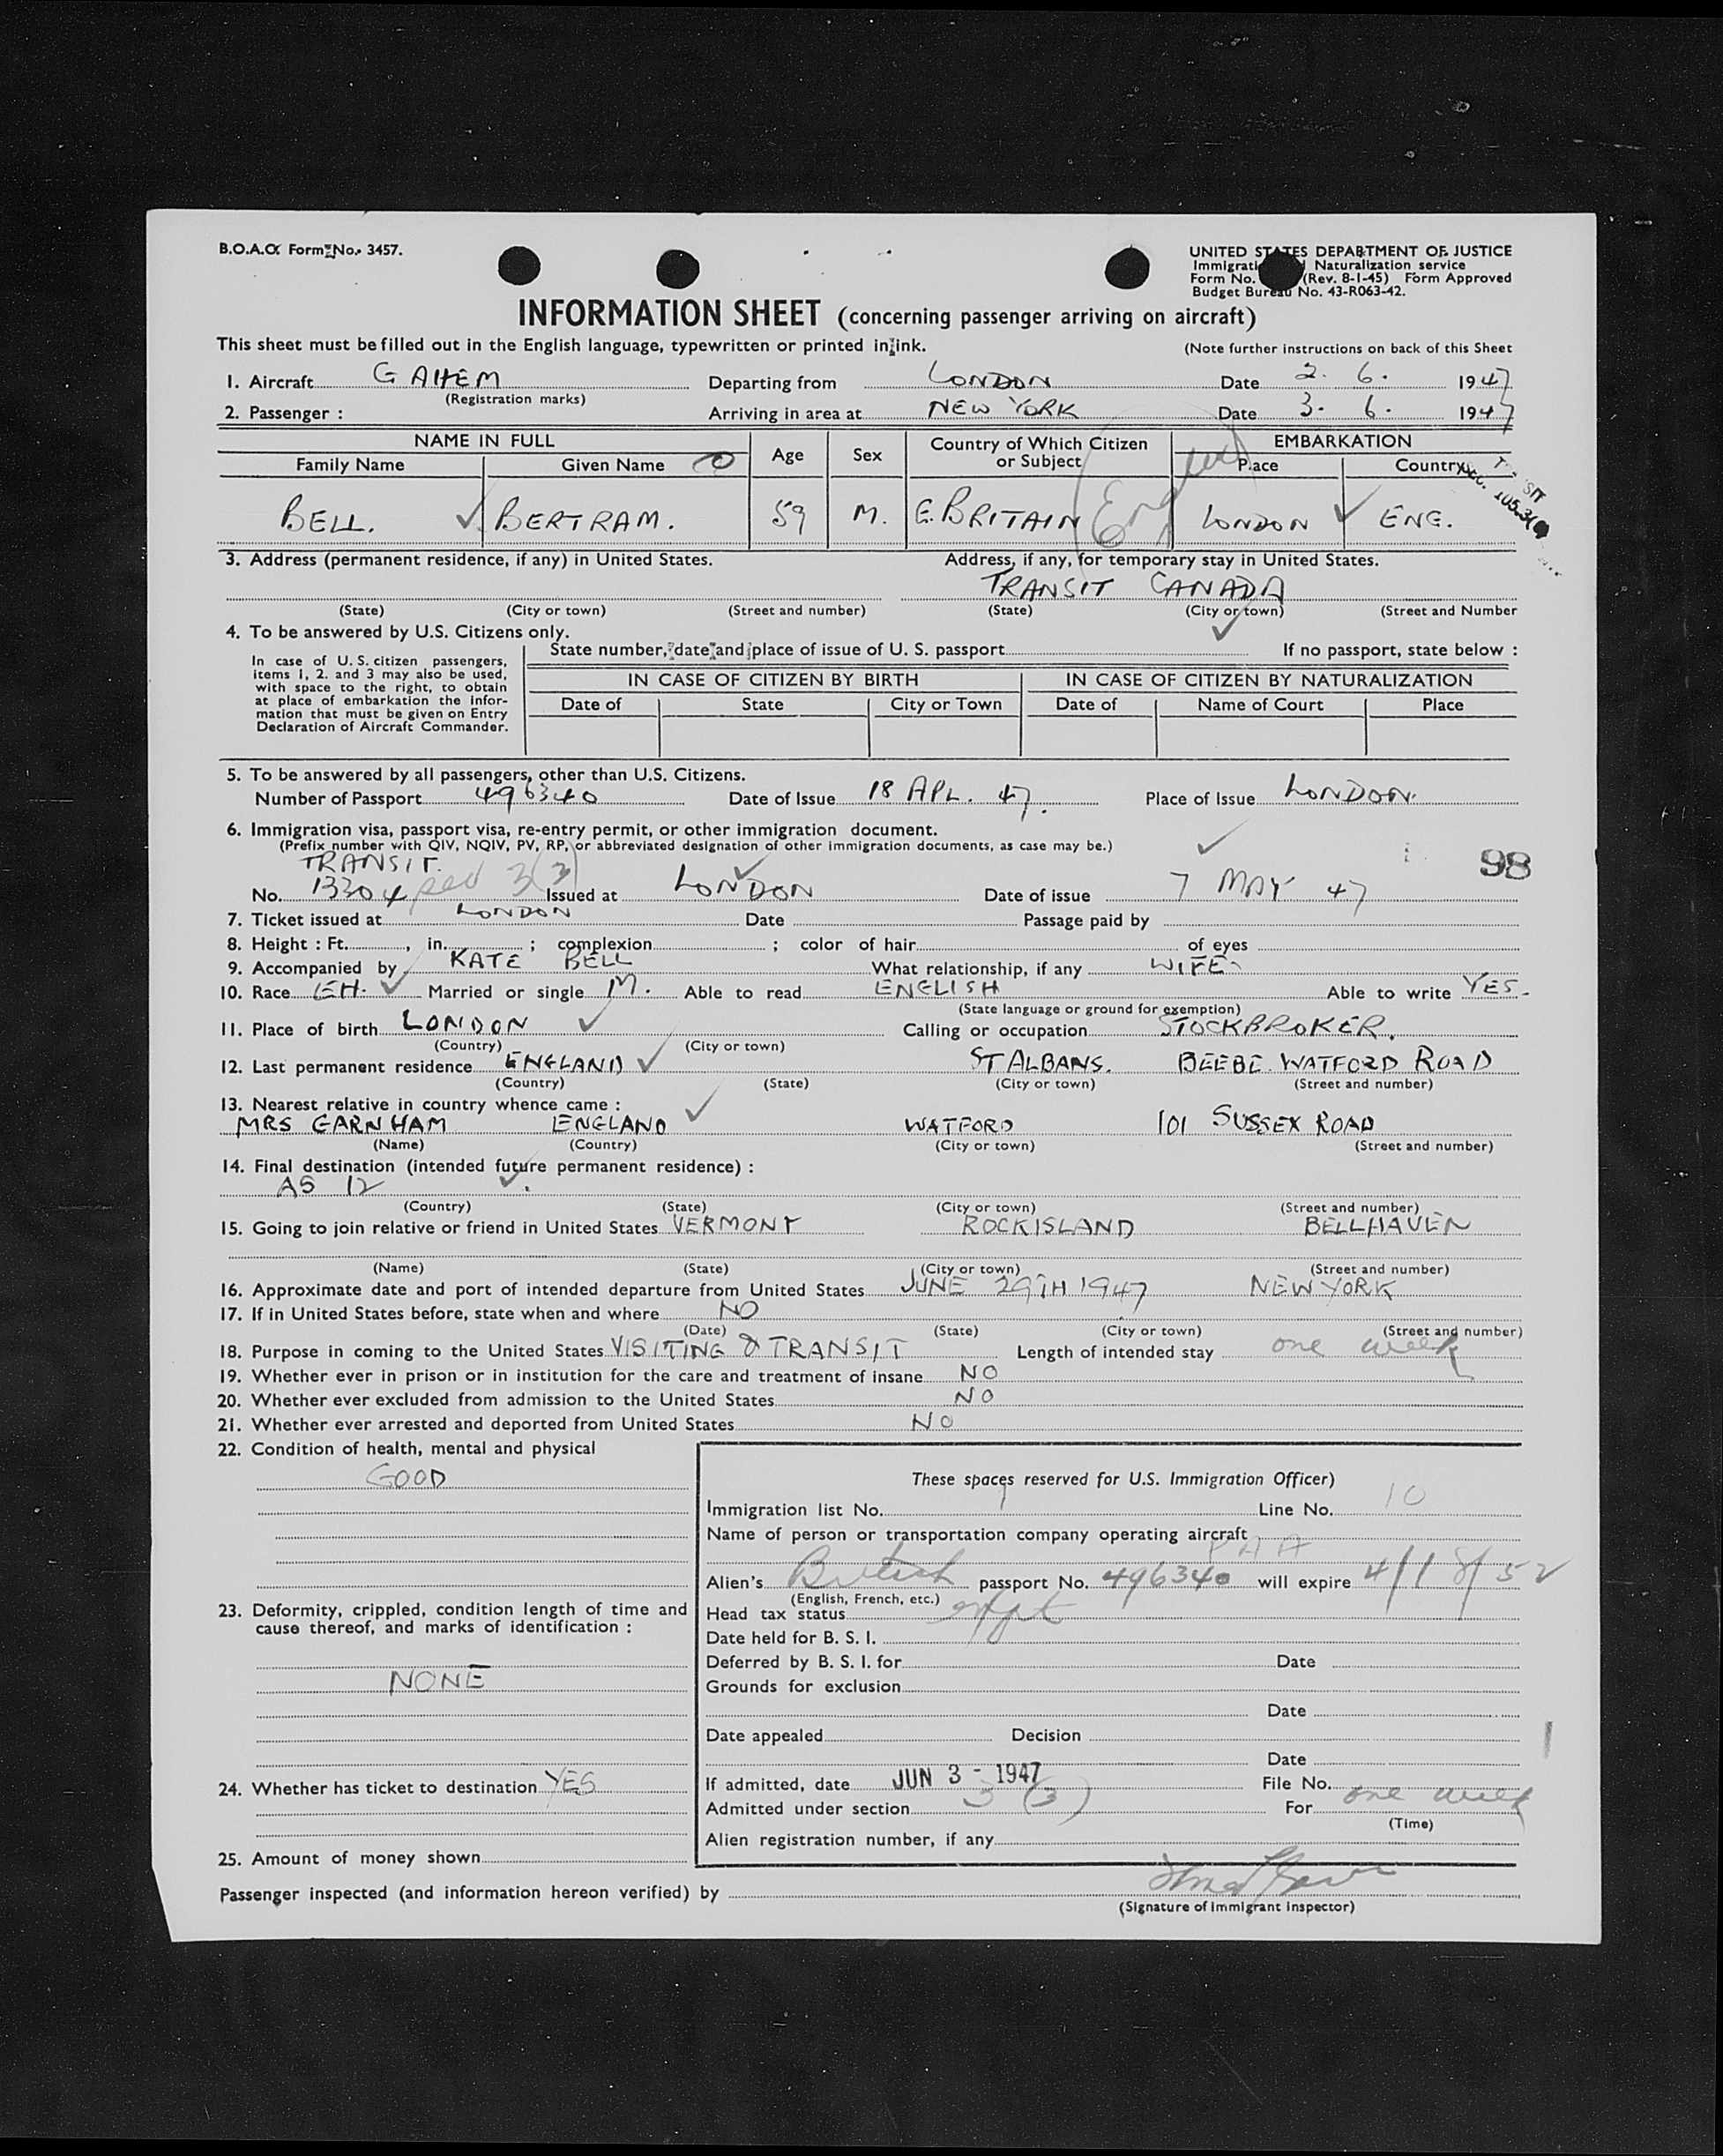 B.O.A.C. Form No. 3457.
UNITED STATES DEPARTMENT OF JUSTICE
Immigrati Naturalization service
Form No. (Rev. 8-1-45) Form Approved
Budget Bureau No. 43-R063-42.
INFORMATION SHEET (concerning passenger arriving on aircraft)
This sheet must be filled out in the English language, typewritten or printed in ink. (Note further instructions on back of this Sheet
1. Aircraft G AHEM Departing from LONDON Date 2. 6. 1947
(Registration marks)
2. Passenger : Arriving in area at NEW YORK Date 3. 6. 1947
NAME IN FULL Age Sex Country of Which Citizen or Subject EMBARKATION
Family Name Given Name Place Country
BELL. BERTRAM. 59 M. G. BRITAIN LONDON ENG.
3. Address (permanent residence, if any) in United States. Address, if any, for temporary stay in United States.
TRANSIT CANADA
(State) (City or town) (Street and number) (State) (City or town) (Street and Number
4. To be answered by U.S. Citizens only.
State number, date and place of issue of U. S. passport If no passport, state below :
In case of U. S. citizen passengers,
items 1, 2. and 3 may also be used,
with space to the right, to obtain
at place of embarkation the infor-
mation that must be given on Entry
Declaration of Aircraft Commander.
IN CASE OF CITIZEN BY BIRTH IN CASE OF CITIZEN BY NATURALIZATION
Date of State City or Town Date of Name of Court Place
5. To be answered by all passengers, other than U.S. Citizens.
Number of Passport 496340 Date of Issue 18 APL. 47. Place of Issue LONDON.
6. Immigration visa, passport visa, re-entry permit, or other immigration document.
(Prefix number with QIV, NQIV, PV, RP, or abbreviated designation of other immigration documents, as case may be.)
TRANSIT. 98
No. 13304 3(3) Issued at LONDON Date of issue 7 MAY 47
7. Ticket issued at LONDON Date Passage paid by
8. Height : Ft. , in. ; complexion ; color of hair of eyes
9. Accompanied by KATE BELL What relationship, if any WIFE
10. Race EH. Married or single M. Able to read ENGLISH Able to write YES.
(State language or ground for exemption)
11. Place of birth LONDON Calling or occupation STOCKBROKER.
(Country) (City or town)
12. Last permanent residence ENGLAND ST ALBANS. BEEBE. WATFORD ROAD
(Country) (State) (City or town) (Street and number)
13. Nearest relative in country whence came :
MRS GARNHAM ENGLAND WATFORD 101 SUSSEX ROAD
(Name) (Country) (City or town) (Street and number)
14. Final destination (intended future permanent residence) :
AS 12
(Country) (State) (City or town) (Street and number)
15. Going to join relative or friend in United States VERMONT ROCKISLAND BELLHAVEN
(Name) (State) (City or town) (Street and number)
16. Approximate date and port of intended departure from United States JUNE 29TH 1947 NEW YORK
17. If in United States before, state when and where NO
(Date) (State) (City or town) (Street and number)
18. Purpose in coming to the United States VISITING & TRANSIT Length of intended stay one week
19. Whether ever in prison or in institution for the care and treatment of insane NO
20. Whether ever excluded from admission to the United States NO
21. Whether ever arrested and deported from United States NO
22. Condition of health, mental and physical
GOOD
23. Deformity, crippled, condition length of time and
cause thereof, and marks of identification :
NONE
24. Whether has ticket to destination YES
25. Amount of money shown
These spaces reserved for U.S. Immigration Officer)
Immigration list No. 1 Line No. 10
Name of person or transportation company operating aircraft
PAA
Alien's British passport No. 496340 will expire 4/18/52
(English, French, etc.)
Head tax status
Date held for B. S. I.
Deferred by B. S. I. for Date
Grounds for exclusion
Date
Date appealed Decision
Date
If admitted, date JUN 3 - 1947 File No.
Admitted under section 3 (3) For one week
(Time)
Alien registration number, if any
Passenger inspected (and information hereon verified) by
(Signature of Immigrant Inspector)